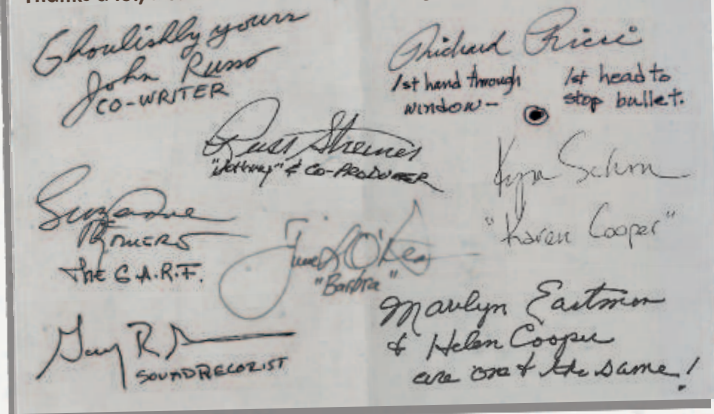 Ghoulishly yours
John Russo
CO-WRITER
Richard Ricci
1st hand through
window-
1st head to
stop bullet.
Russ Streiner
"Johnny" & CO-PRODUCER
Kyra Schon
"Karen Cooper"
Suzanne
ROMERO
The G.A.R.F.
Judith O'Dea
"Barbra"
Gary R
SOUND RECORDIST
Marilyn Eastman
& Helen Cooper
are one & the same!